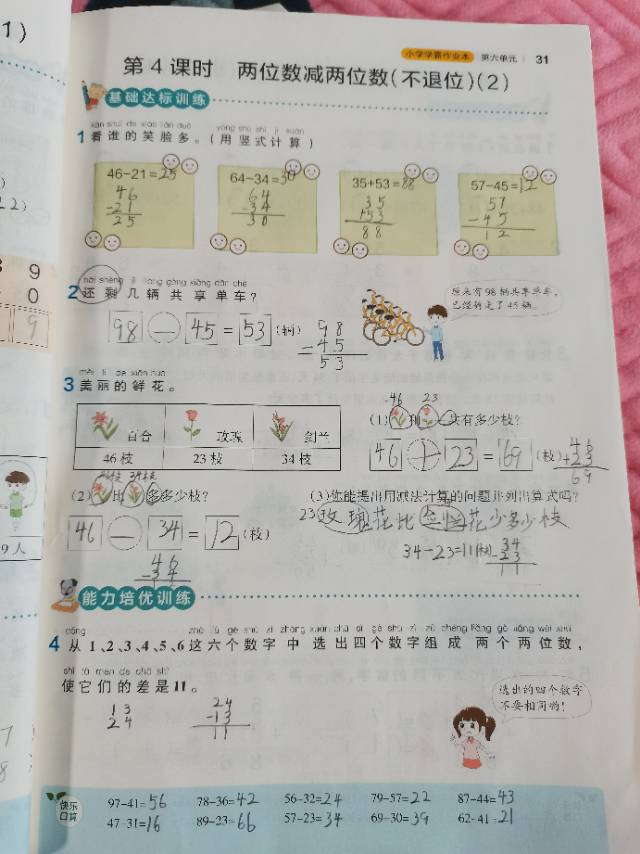 小学学霸作业本 第六单元 31
第4课时 两位数减两位数(不退位)(2)
基础达标训练
1 看谁的笑脸多。(用竖式计算)
46-21=25 64-34=30 35+53=88 57-45=12
46 64 35 57
-21 34 +53 -45
25 30 88 12
2 还剩几辆共享单车?
原来有98辆共享单车,
已经骑走了45辆。
98 - 45 = 53 (辆)
98
-45
53
3 美丽的鲜花。
百合 玫瑰 剑兰
46枝 23枝 34枝
46 23
(1) 和 一共有多少枝?
46 + 23 = 69 (枝)
46
+23
69
(2) 比 多多少枝?
46 - 34 = 12 (枝)
(3)你能提出用减法计算的问题并列出算式吗?
23 玫瑰花比剑兰花少多少枝
34-23=11(枝)
34
-23
11
能力培优训练
4 从1、2、3、4、5、6这六个数字中选出四个数字组成两个两位数,
使它们的差是11。
选出的四个数字
不要相同哟!
13
24
24
-13
11
快乐口算
97-41=56 78-36=42 56-32=24 79-57=22 87-44=43
47-31=16 89-23=66 57-23=34 69-30=39 62-41=21